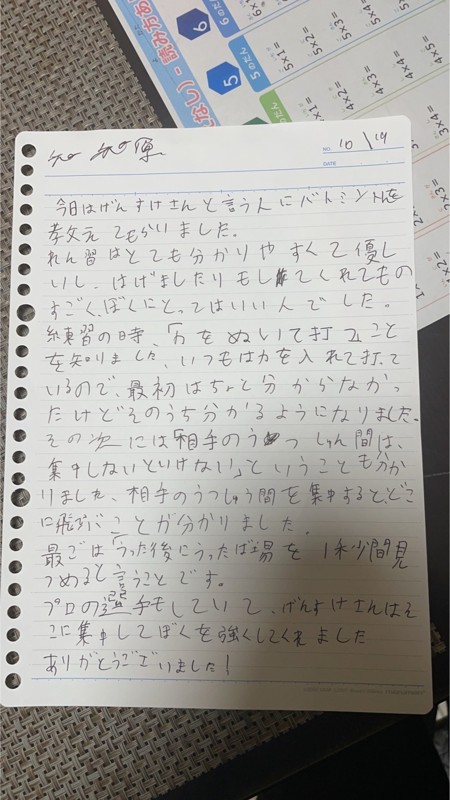 なし)-読み方あ
6 6のだん
5 5のだん
5×1=
5×2=
5×3=
5×4=
4×2=
4×3=
4×4=
4×5=
3×4=
NO. 10/19
DATE
今日はげんすけさんと言う人にバトミントンを
教えてもらいました。
れん習はとても分かりやすくて優し
いし、はげましたりもしてくれてもの
すごく、ぼくにとってはいい人でした。
練習の時、「力をぬいて打つこと
を知りました、いつもは力を入れて打って
いるので、最初はちょと分からなかっ
たけどそのうち分かるようになりました。
その次には「相手のうつしゅん間は、
集中しないといけない」ということも分か
りました、相手のうつしゅう間を集中すると、どこ
に飛ぶことが分かりました。
最ごはうった後にうったば場を1秒間見
つめると言うことです。
プロの選手もしていて、げんすけさんはそ
こに集中してぼくを強くしてくれました
ありがとうございました!